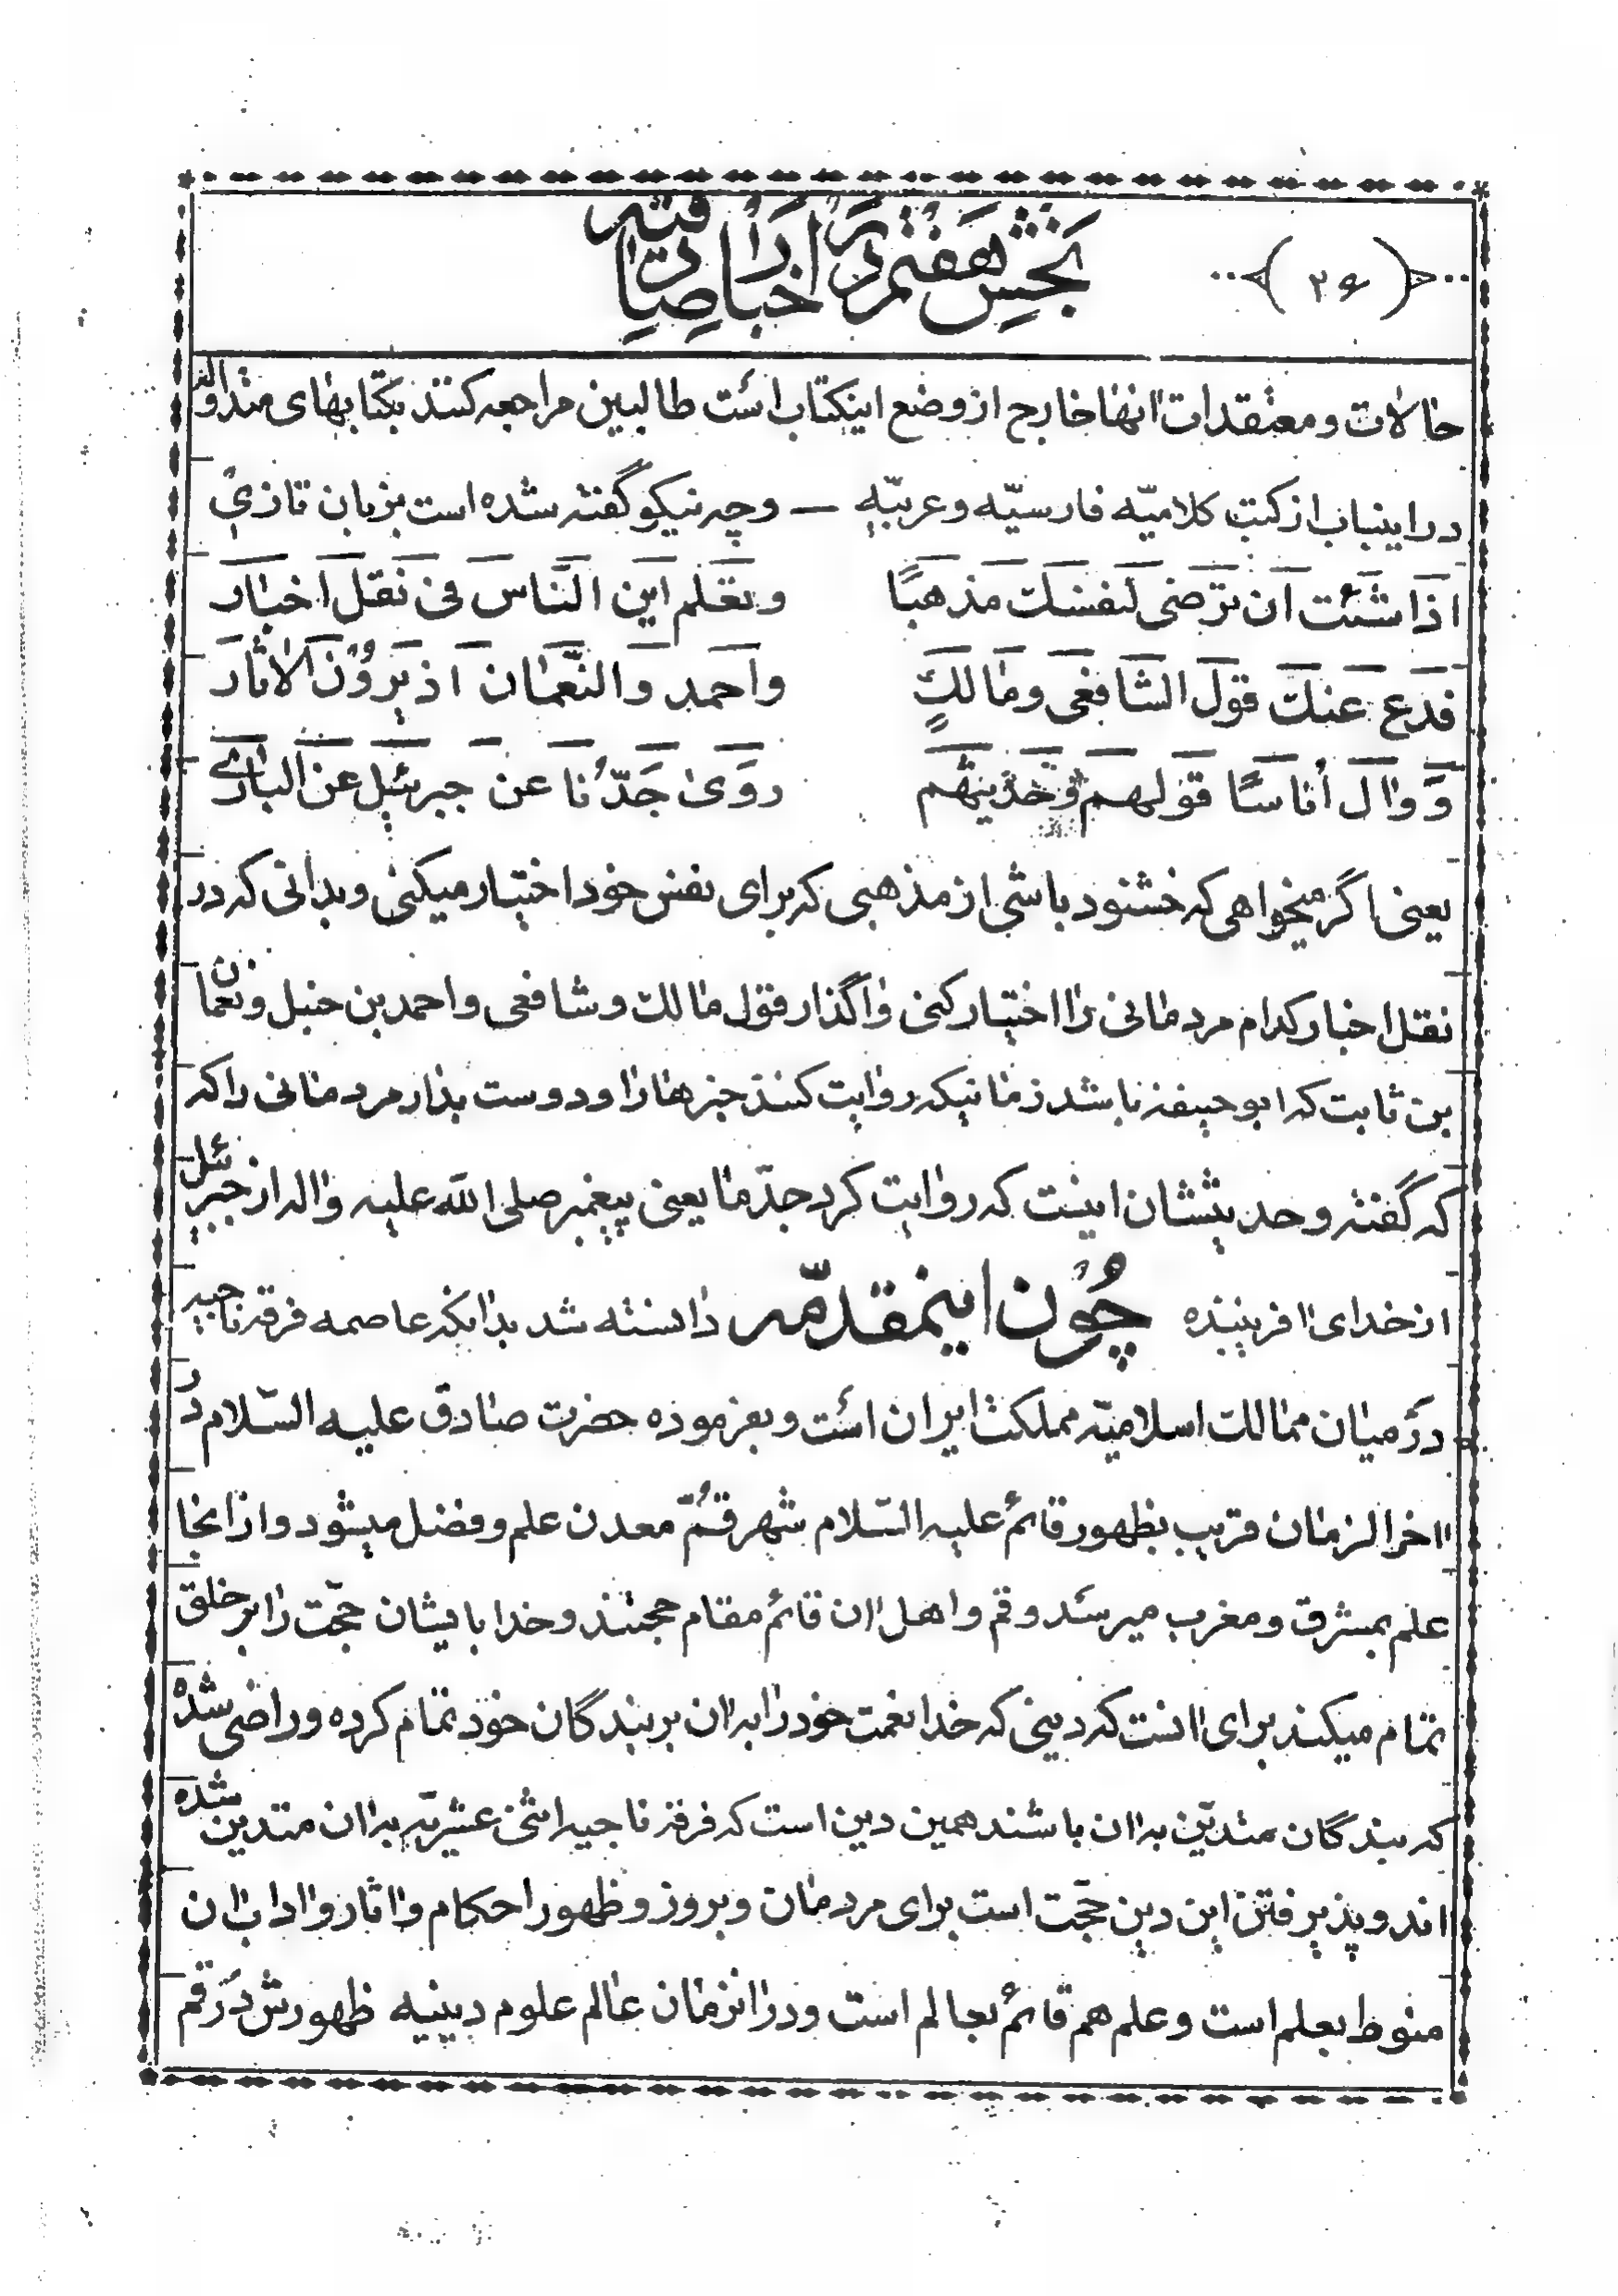 (۲۶)
بخش هفتم در اخبار صادقیه
حالات و معتقدات انها خارج از وضع اینکتاب است طالبین مراجعه کنند بکتابهای متداوله
در اینباب از کتب کلامیّه فارسیّه و عربیّه — و چه نیکو گفته شده است بزبان تازی
اذا شئت ان ترضی لنفسك مذهبًا و تعلم این النّاس فی نقل اخبار
فدع عنك قول الشافعی و مالكٍ و احمد و النّعمان اذ یروُون الاثار
و وال اُناسًا قولهم و حدیثهم روی جدّنا عن جبرئیل عن الباری
یعنی اگر میخواهی که خشنود باشی از مذهبی که برای نفس خود اختیار میکنی و بدانی که در
نقل اخبار کدام مردمانی را اختیار کنی واگذار قول مالك و شافعی و احمد بن حنبل و نعمان
بن ثابت که ابو حنیفه باشد زمانیکه روایت کنند خبرها را و دوست بدار مردمانی را که
که گفته و حدیثشان اینست که روایت کرد جدّ ما یعنی پیغمبر صلی الله علیه واله از جبرئیل
از خدای افریننده چُون اینمقدّمه دانسته شد بدانکه عاصمه فرقه ناجیه
در میان ممالك اسلامیّه مملکت ایران است و بفرموده حضرت صادق علیه السّلام در
اخر الزمان قریب بظهور قائم علیه السّلام شهر قُمّ معدن علم و فضل میشود و از انجا
علم بمشرق و مغرب میرسد و قم و اهل ان قائم مقام حجتند و خدا بایشان حجّت را بر خلق
تمام میکند برای انست که دینی که خدا نعمت خود را به ان بر بندگان خود تمام کرده و راضی شده
که بندگان متدیّن به ان باشند همین دین است که فرقه ناجیه اثنی عشریّه به ان متدین شده
اند و پذیرفتن این دین حجّت است برای مردمان و بروز و ظهور احکام و اثار و اداب ان
منوط بعلم است و علم هم قائم بعالم است و در انزمان عالم علوم دینیه ظهورش در قم